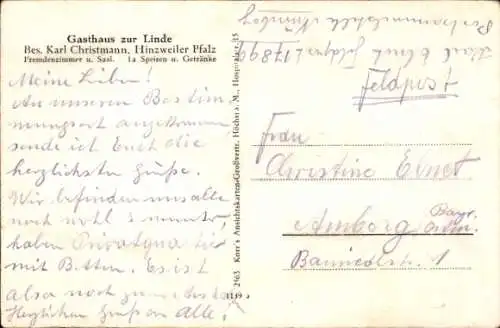 Gasthaus zur Linde
Bes. Karl Christmann, Hinzweiler Pfalz
Fremdenzimmer u. Saal. 1a Speisen u. Getränke
Meine Lieben!
An unseren Bestim-
mungsort angekommen
sende ich Euch die
herzlichsten Grüße.
Wir befinden uns alle
noch wohl & munter,
haben Privatqua
mit Betten. Es ist
also noch zum
Herzlichen Gruß an Alle!
2163 Korr's Ansichtskarten-Großvertr. Höchst a. M., Hospitalstr. 15
Feldpost L 17899
Feldpost
Frau
Christine Ebnet
Amberg Bayr.
1